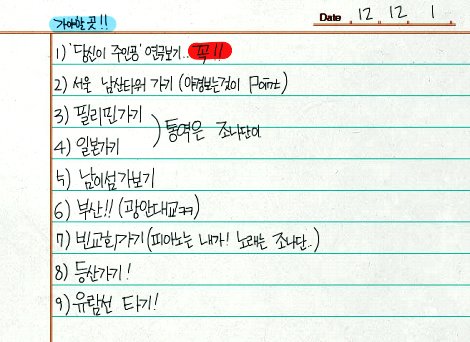 가야할 곳!!
Date . 12 . 12 . 1 .
1) '당신이 주인공' 연극보기... 꼭!!
2) 서울 남산타워 가기 (야경보는것이 Point)
3) 필리핀가기
) 통역은 조나단이
4) 일본가기
5) 남이섬가보기
6) 부산!! (광안대교ㅋㅋ)
7) 빈교회가기 (피아노는 내가! 노래는 조나단..)
8) 등산가기!
9) 유람선 타기!